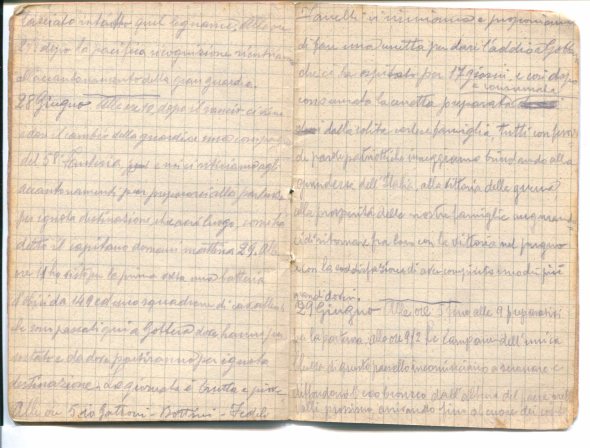 lasciato intatto quel legname. Alle ore
dopo la pacifica ricognizione rientriamo
all'accantonamento della gran guardia.
28 Giugno Alle ore 10 dopo il rancio ci viene
a dare il cambio della guardia una compagnia
del 5° Fanteria e noi ci avviciniamo agli
accantonamenti per prepararci alla partenza
per ignota destinazione che avrà luogo, come ha
detto il capitano domani mattina 29. Alle
ore 11 ho visto per la prima volta una batteria
d'obici da 149 ed uno squadrone di cavalleria
che son passati qui a dove hanno
e da dove partiranno per ignota
destinazione. La giornata è brutta e piove.
Alle ore 5 io Gattoni - Bottini - Fedeli
Zanelli ci riuniamo e proponiamo
di fare una cenetta per dare l'addio a
che ci ha ospitato per 17 giorni e così dopo
e consumata
consumata la cenetta preparata
dalla solita famiglia, tutti con
di parole patriottiche inneggiamo brindando alla
grandezza dell'Italia, alla vittoria della guerra,
alla prosperità delle nostre famiglie augurando
ci di ritornare fra loro con la vittoria nel pugno
e con la soddisfazione di aver compiuto uno dei più
grandi doveri.
29 Giugno Alle ore 5 fino alle 9 preparativi
per la partenza, alle ore 9/2 le campane dell'unica
chiesa di questo paesello incominciano a suonare e
diffondono il suo bronzeo dall'altura del paese nelle
valli prossime, arrivando fino al cuore dei